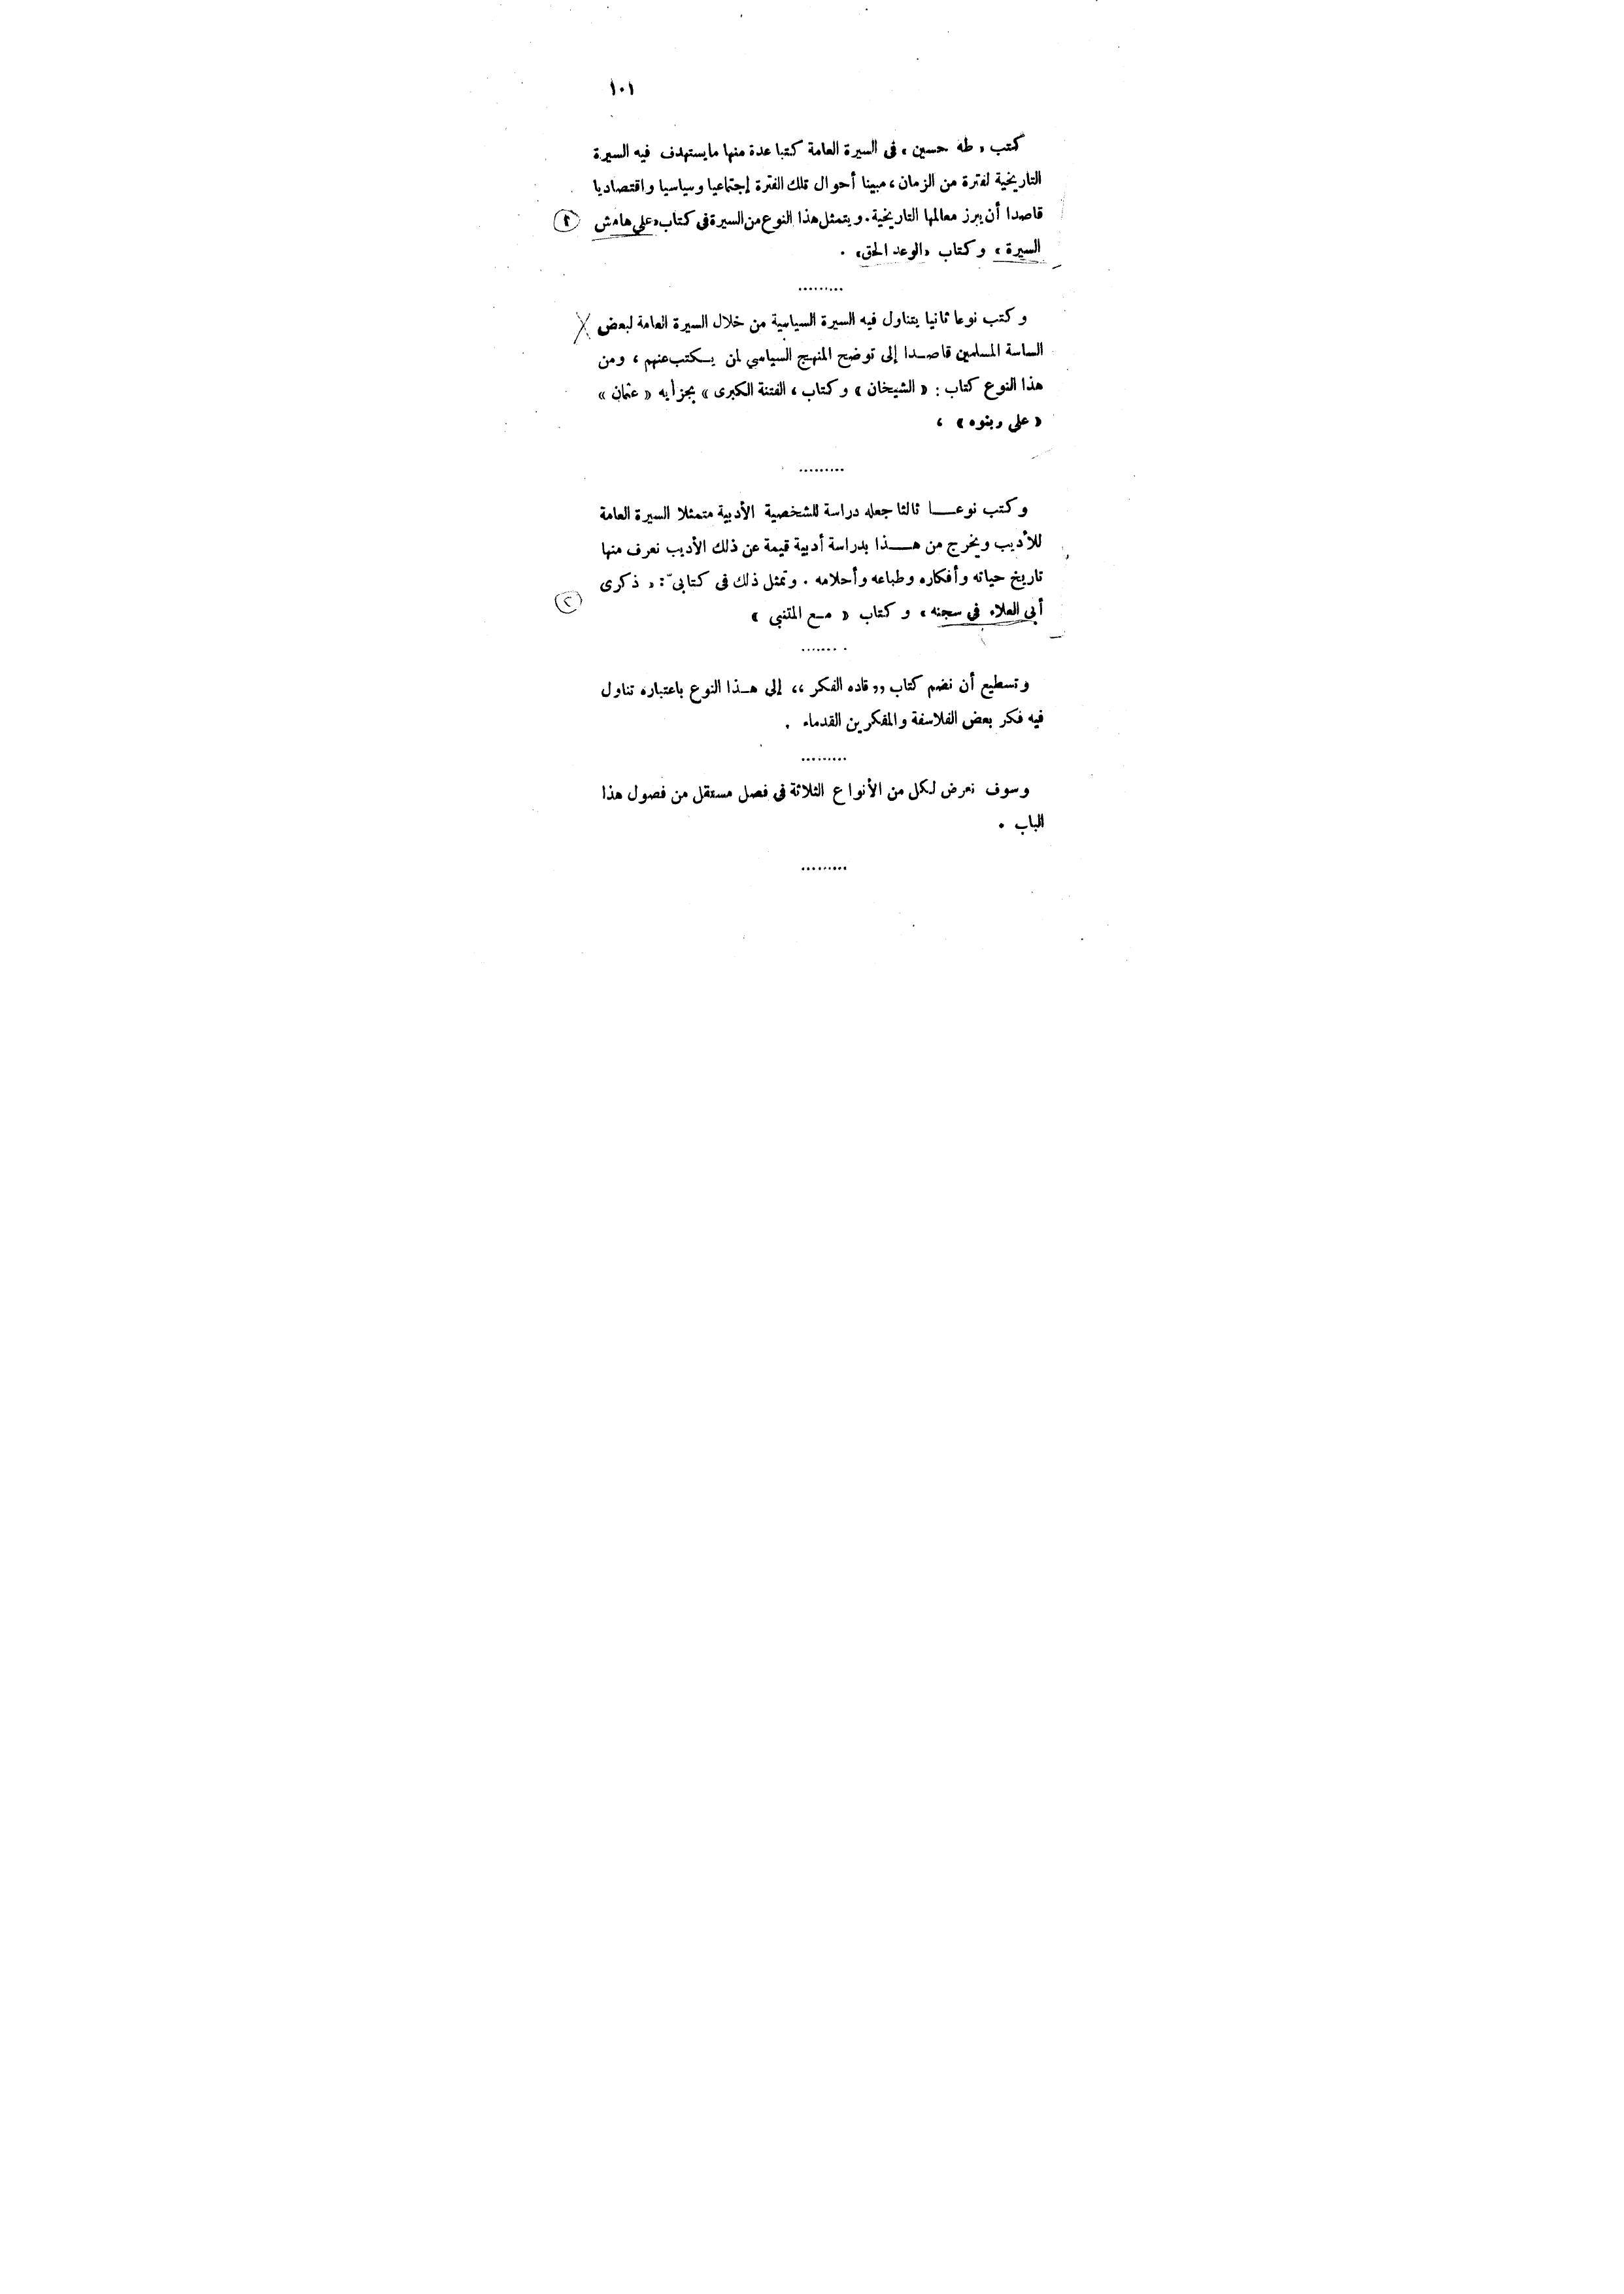 ١٠١
كتب « طه حسين » فى السيرة العامة كتبا عدة منها مايستهدف فيه السيرة
التاريخية لفترة من الزمان ، مبينا أحوال تلك الفترة إجتماعيا وسياسيا واقتصاديا
قاصدا أن يبرز معالمها التاريخية . ويتمثل هذا النوع من السيرة فى كتاب « على هامش
السيرة » وكتاب « الوعد الحق » .
.........
وكتب نوعا ثانيا يتناول فيه السيرة السياسية من خلال السيرة العامة لبعض
الساسة المسلمين قاصدا إلى توضح المنهج السياسي لمن يكتب عنهم ، ومن
هذا النوع كتاب : « الشيخان » وكتاب ، الفتنة الكبرى » بجزأيه « عثمان »
« على وبنوه » ،
.........
وكتب نوعا ثالثا جعله دراسة للشخصية الأدبية متمثلا السيرة العامة
للأديب ويخرج من هذا بدراسة أدبية قيمة عن ذلك الأديب نعرف منها
تاريخ حياته وأفكاره وطباعه وأحلامه . وتمثل ذلك فى كتابىّ : « ذكرى
٢
أبى العلاء فى سجنه » وكتاب « مع المتنبى »
.........
وتسطيع أن نضم كتاب ,, قاده الفكر ،، إلى هذا النوع باعتباره تناول
فيه فكر بعض الفلاسفة والمفكرين القدماء .
.........
وسوف نعرض لكل من الأنواع الثلاثة فى فصل مستقل من فصول هذا
الباب .
.........